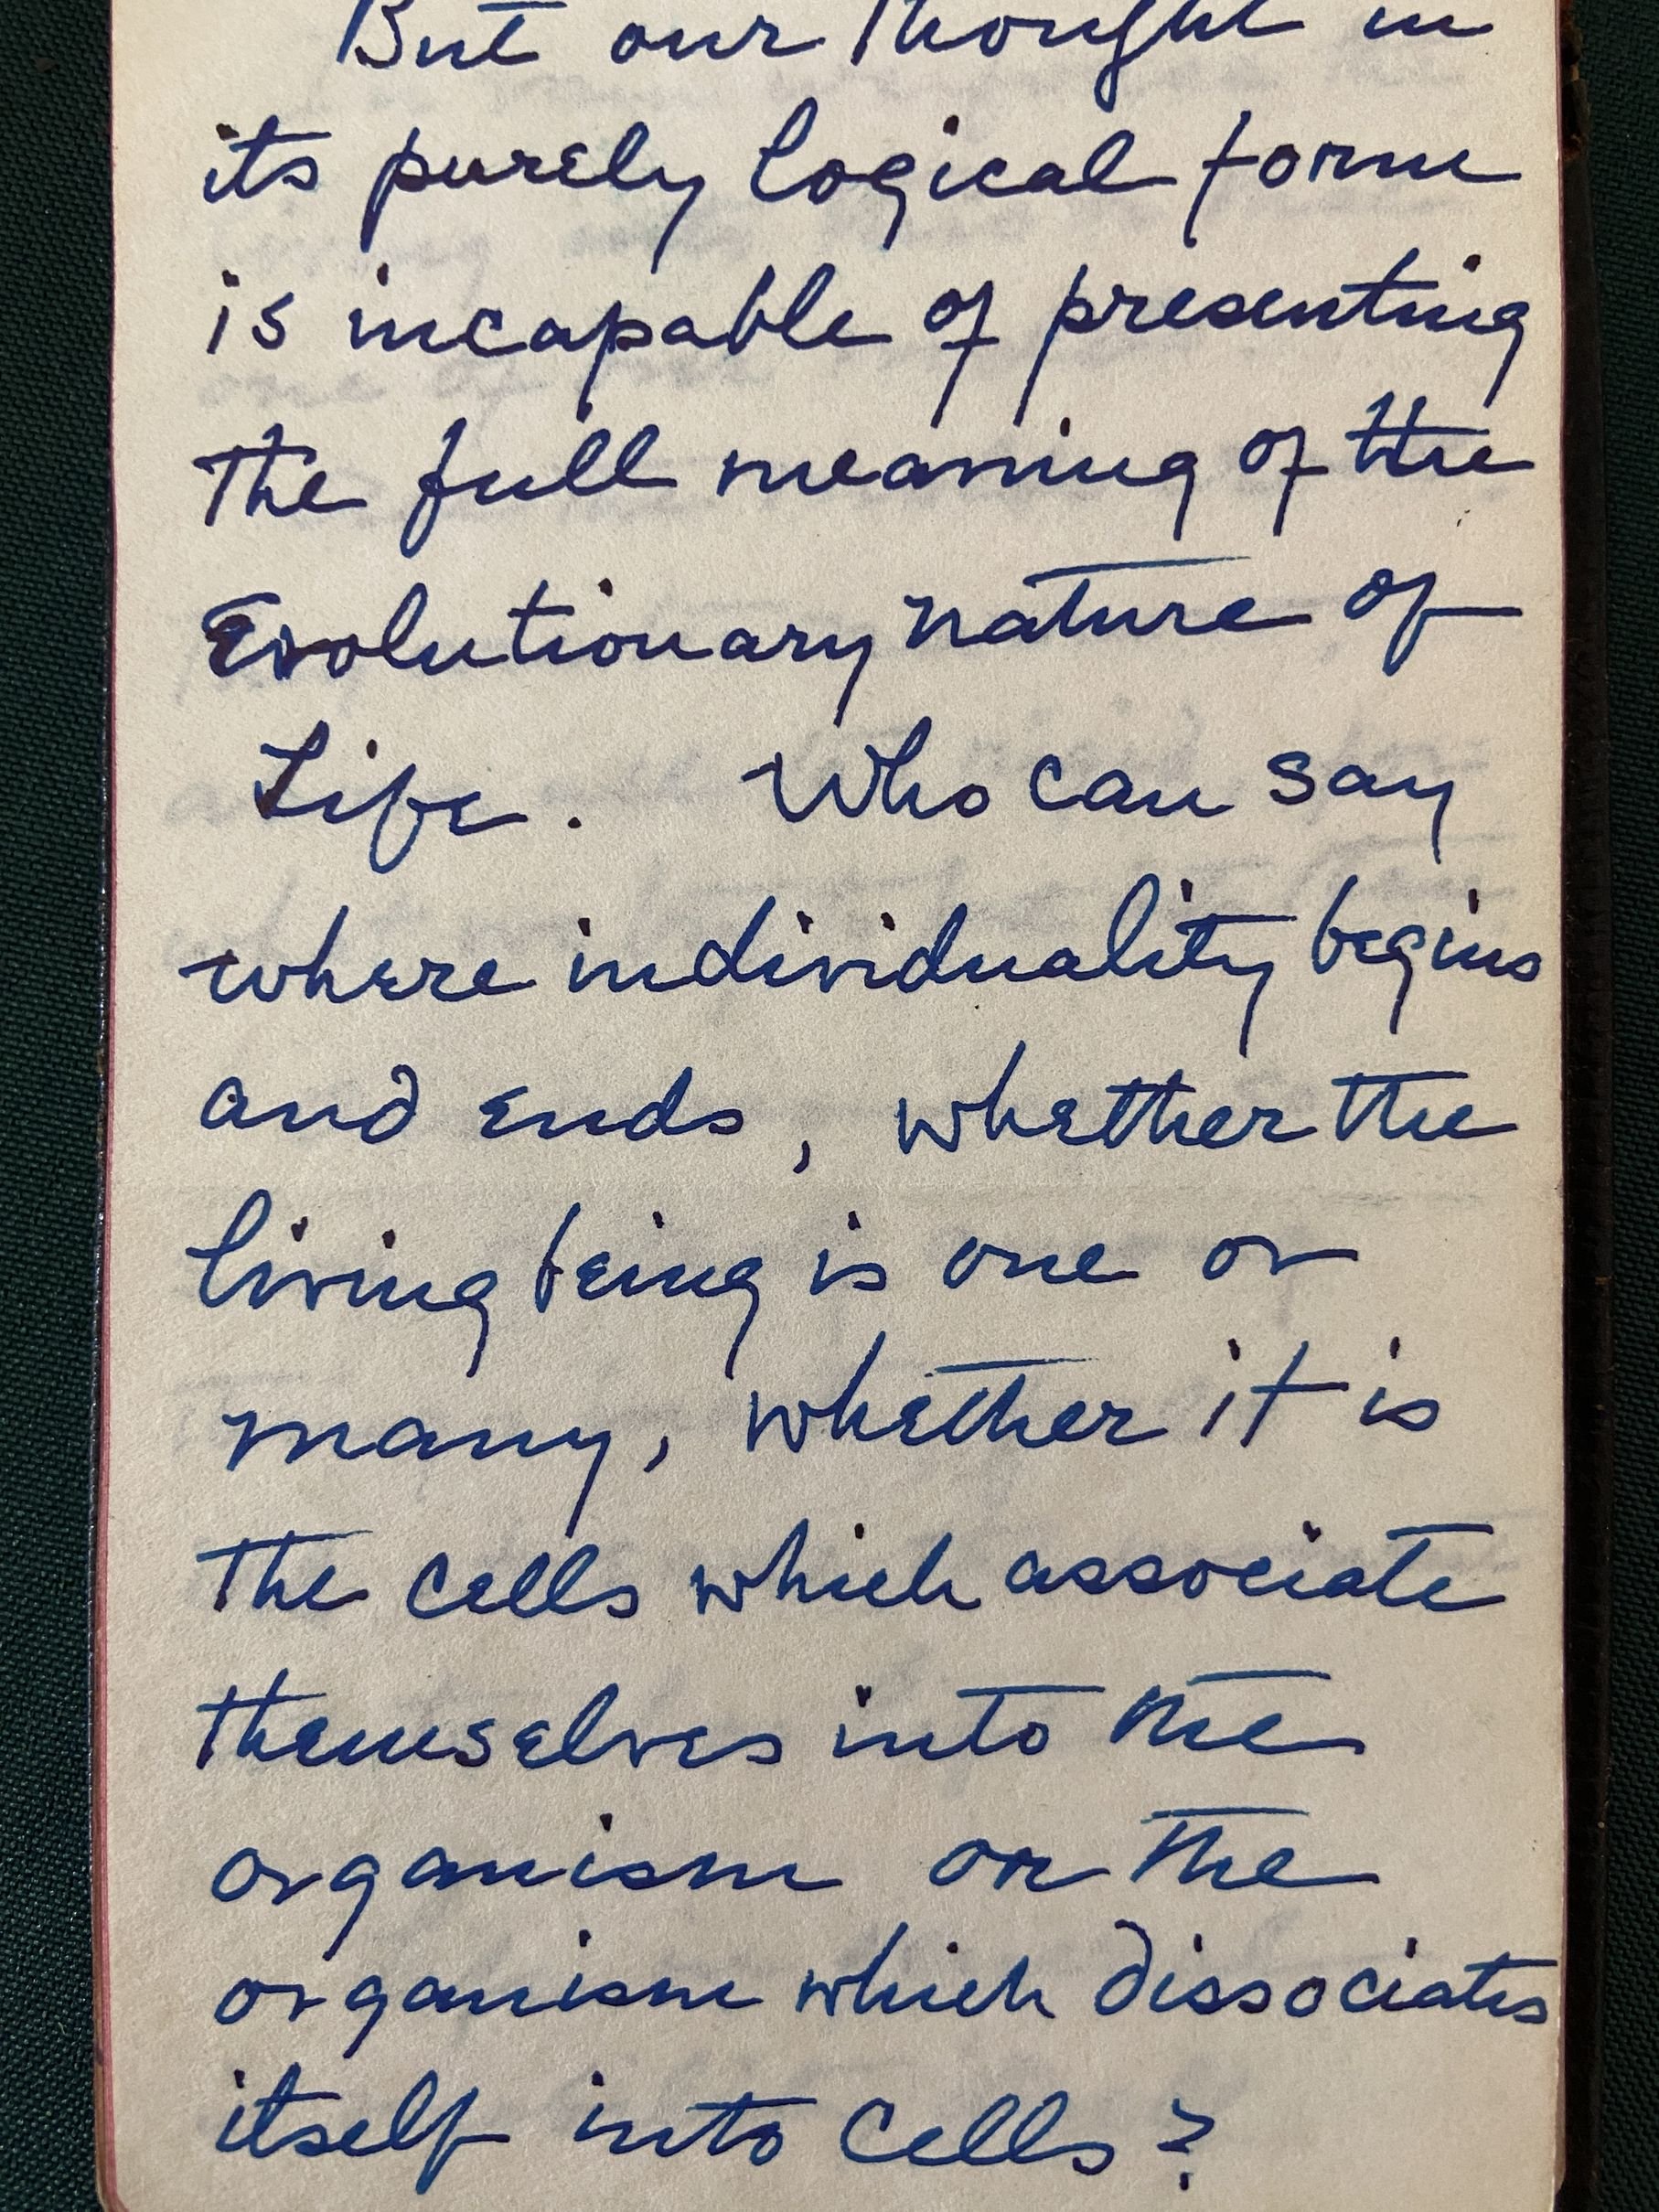 But our Thought in
its purely logical form
is incapable of presenting
The full meaning of the
Evolutionary nature of
Life. Who can say
where individuality begins
and ends, whether the
living being is one or
many, whether it is
The cells which associate
themselves into the
organism or the
organism which dissociates
itself into cells?